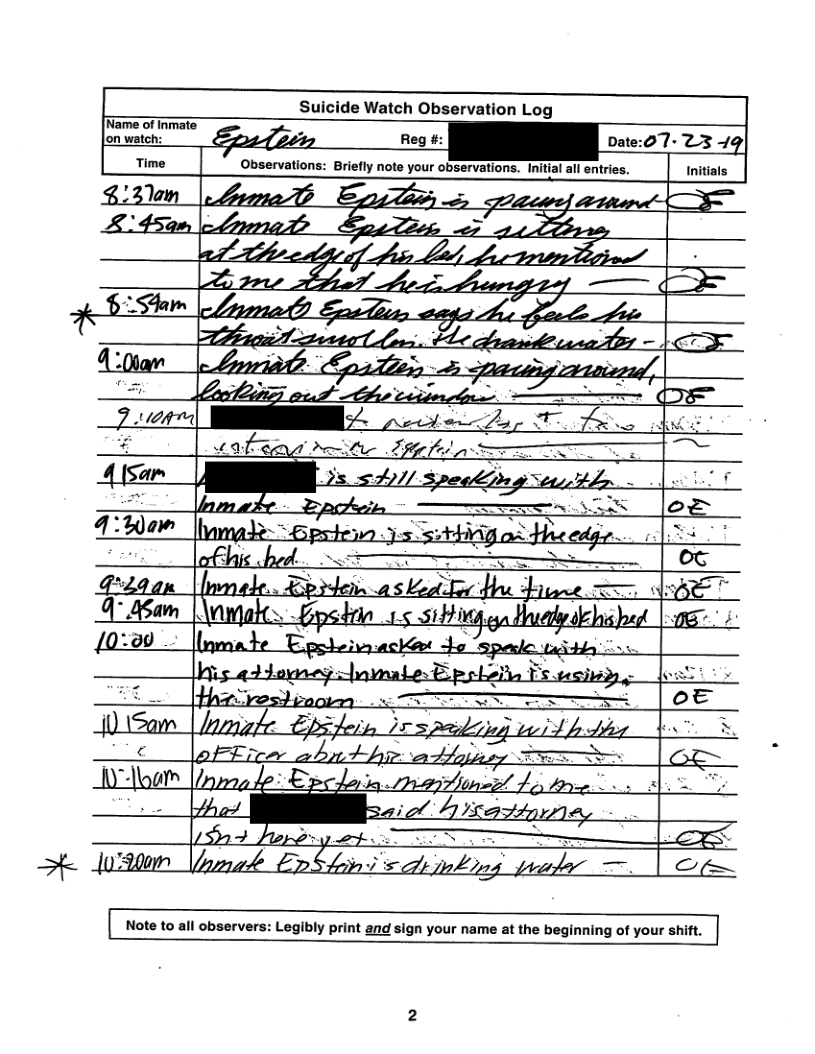 Suicide Watch Observation Log
Name of Inmate on watch: Epstein Reg #: Date: 07-23-19
Time Observations: Briefly note your observations. Initial all entries. Initials
8:37am Inmate Epstein is pacing around OE
8:45am Inmate Epstein is sitting
at the edge of his bed, he mentioned
to me that he is hungry — OE
* 8:54am Inmate Epstein says he feels his
throat swollen. He drank water - OE
9:00am Inmate Epstein is pacing around,
looking out the window OE
9:10AM
Epstein
9 15am is still speaking with
Inmate Epstein OE
9:30am Inmate Epstein is sitting on the edge
of his bed OE
9:39am Inmate Epstein asked for the time — OE
9:45am Inmate Epstein is sitting on the edge of his bed OE
10:00 Inmate Epstein asked to speak with
his attorney. Inmate Epstein is using
the restroom OE
10 15am Inmate Epstein is speaking with the
officer about his attorney OE
10:16am Inmate Epstein mentioned to me
that said his attorney
isn't here yet OE
* Inmate Epstein is drinking water — OE
Note to all observers: Legibly print and sign your name at the beginning of your shift.
2